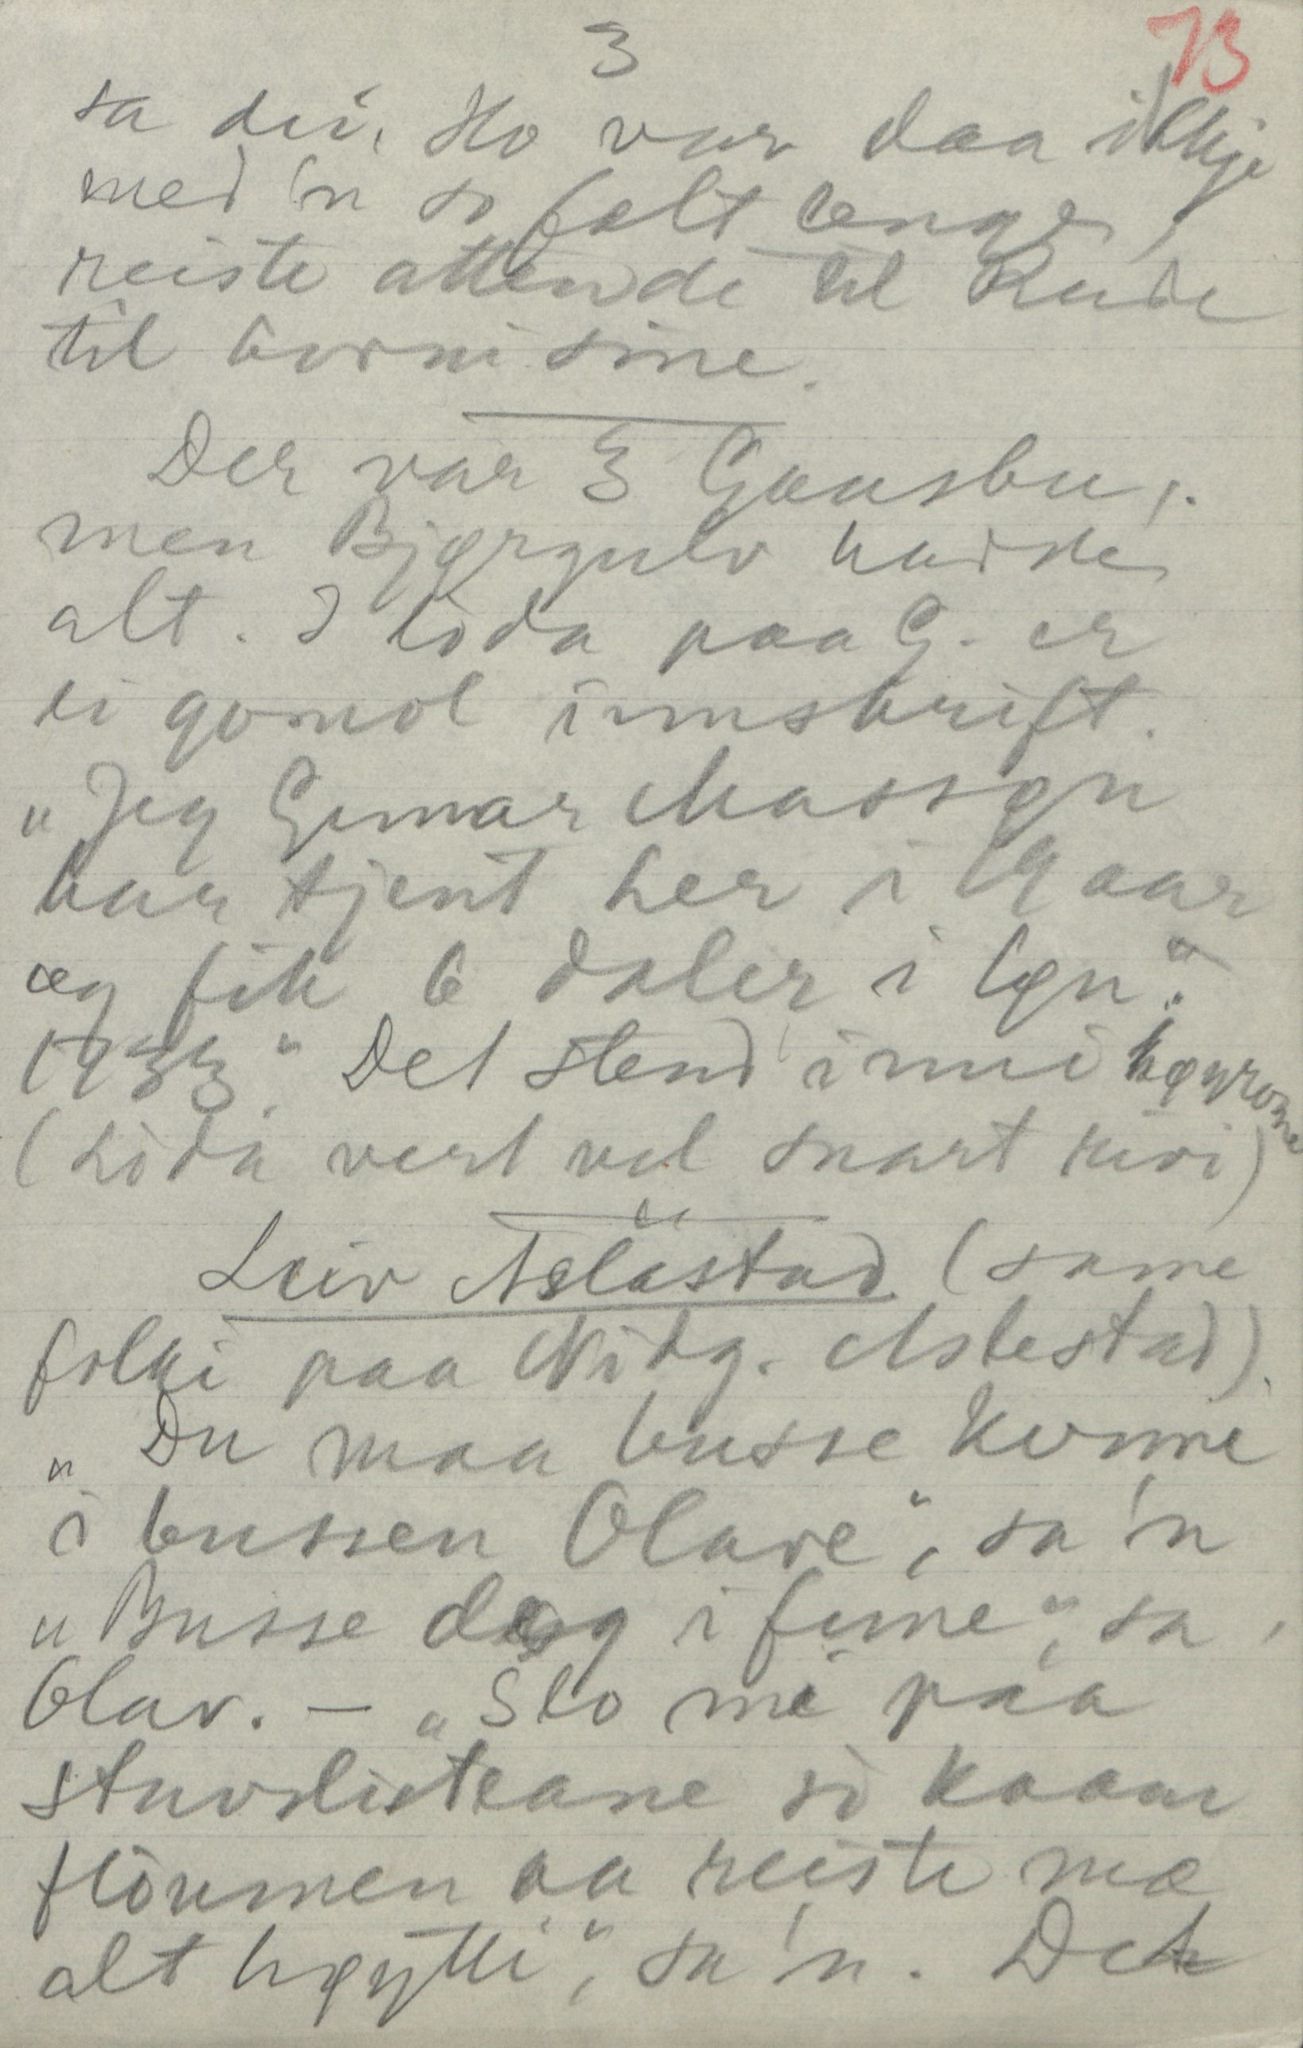 3
73
sa dei. Ho var daa ikkje
med 'n so falt lenge,
reiste attende til Rude
til borni sine.
Der var 3 Gaasbu,
men Bjørgulv hadde
alt. I löda paa G. er
ei gomol innskrift.
"Jeg Gunnar Aassøn
har tjent her i 9 aar
og fik 6 daler i løn".
1733." Det stend inni høyrome
(Löda vert vel snart rivi)
Leiv Aslastad (same
folki paa Midg. Aslestad).
"Du maa busse kvime
i bussen Olave", sa 'n
"Busse deg i fume", sa
Olav. — "Slo me paa
stuvslisteane so kaam
flöumen aa reiste mæ
alt høytti", sa 'n. Det